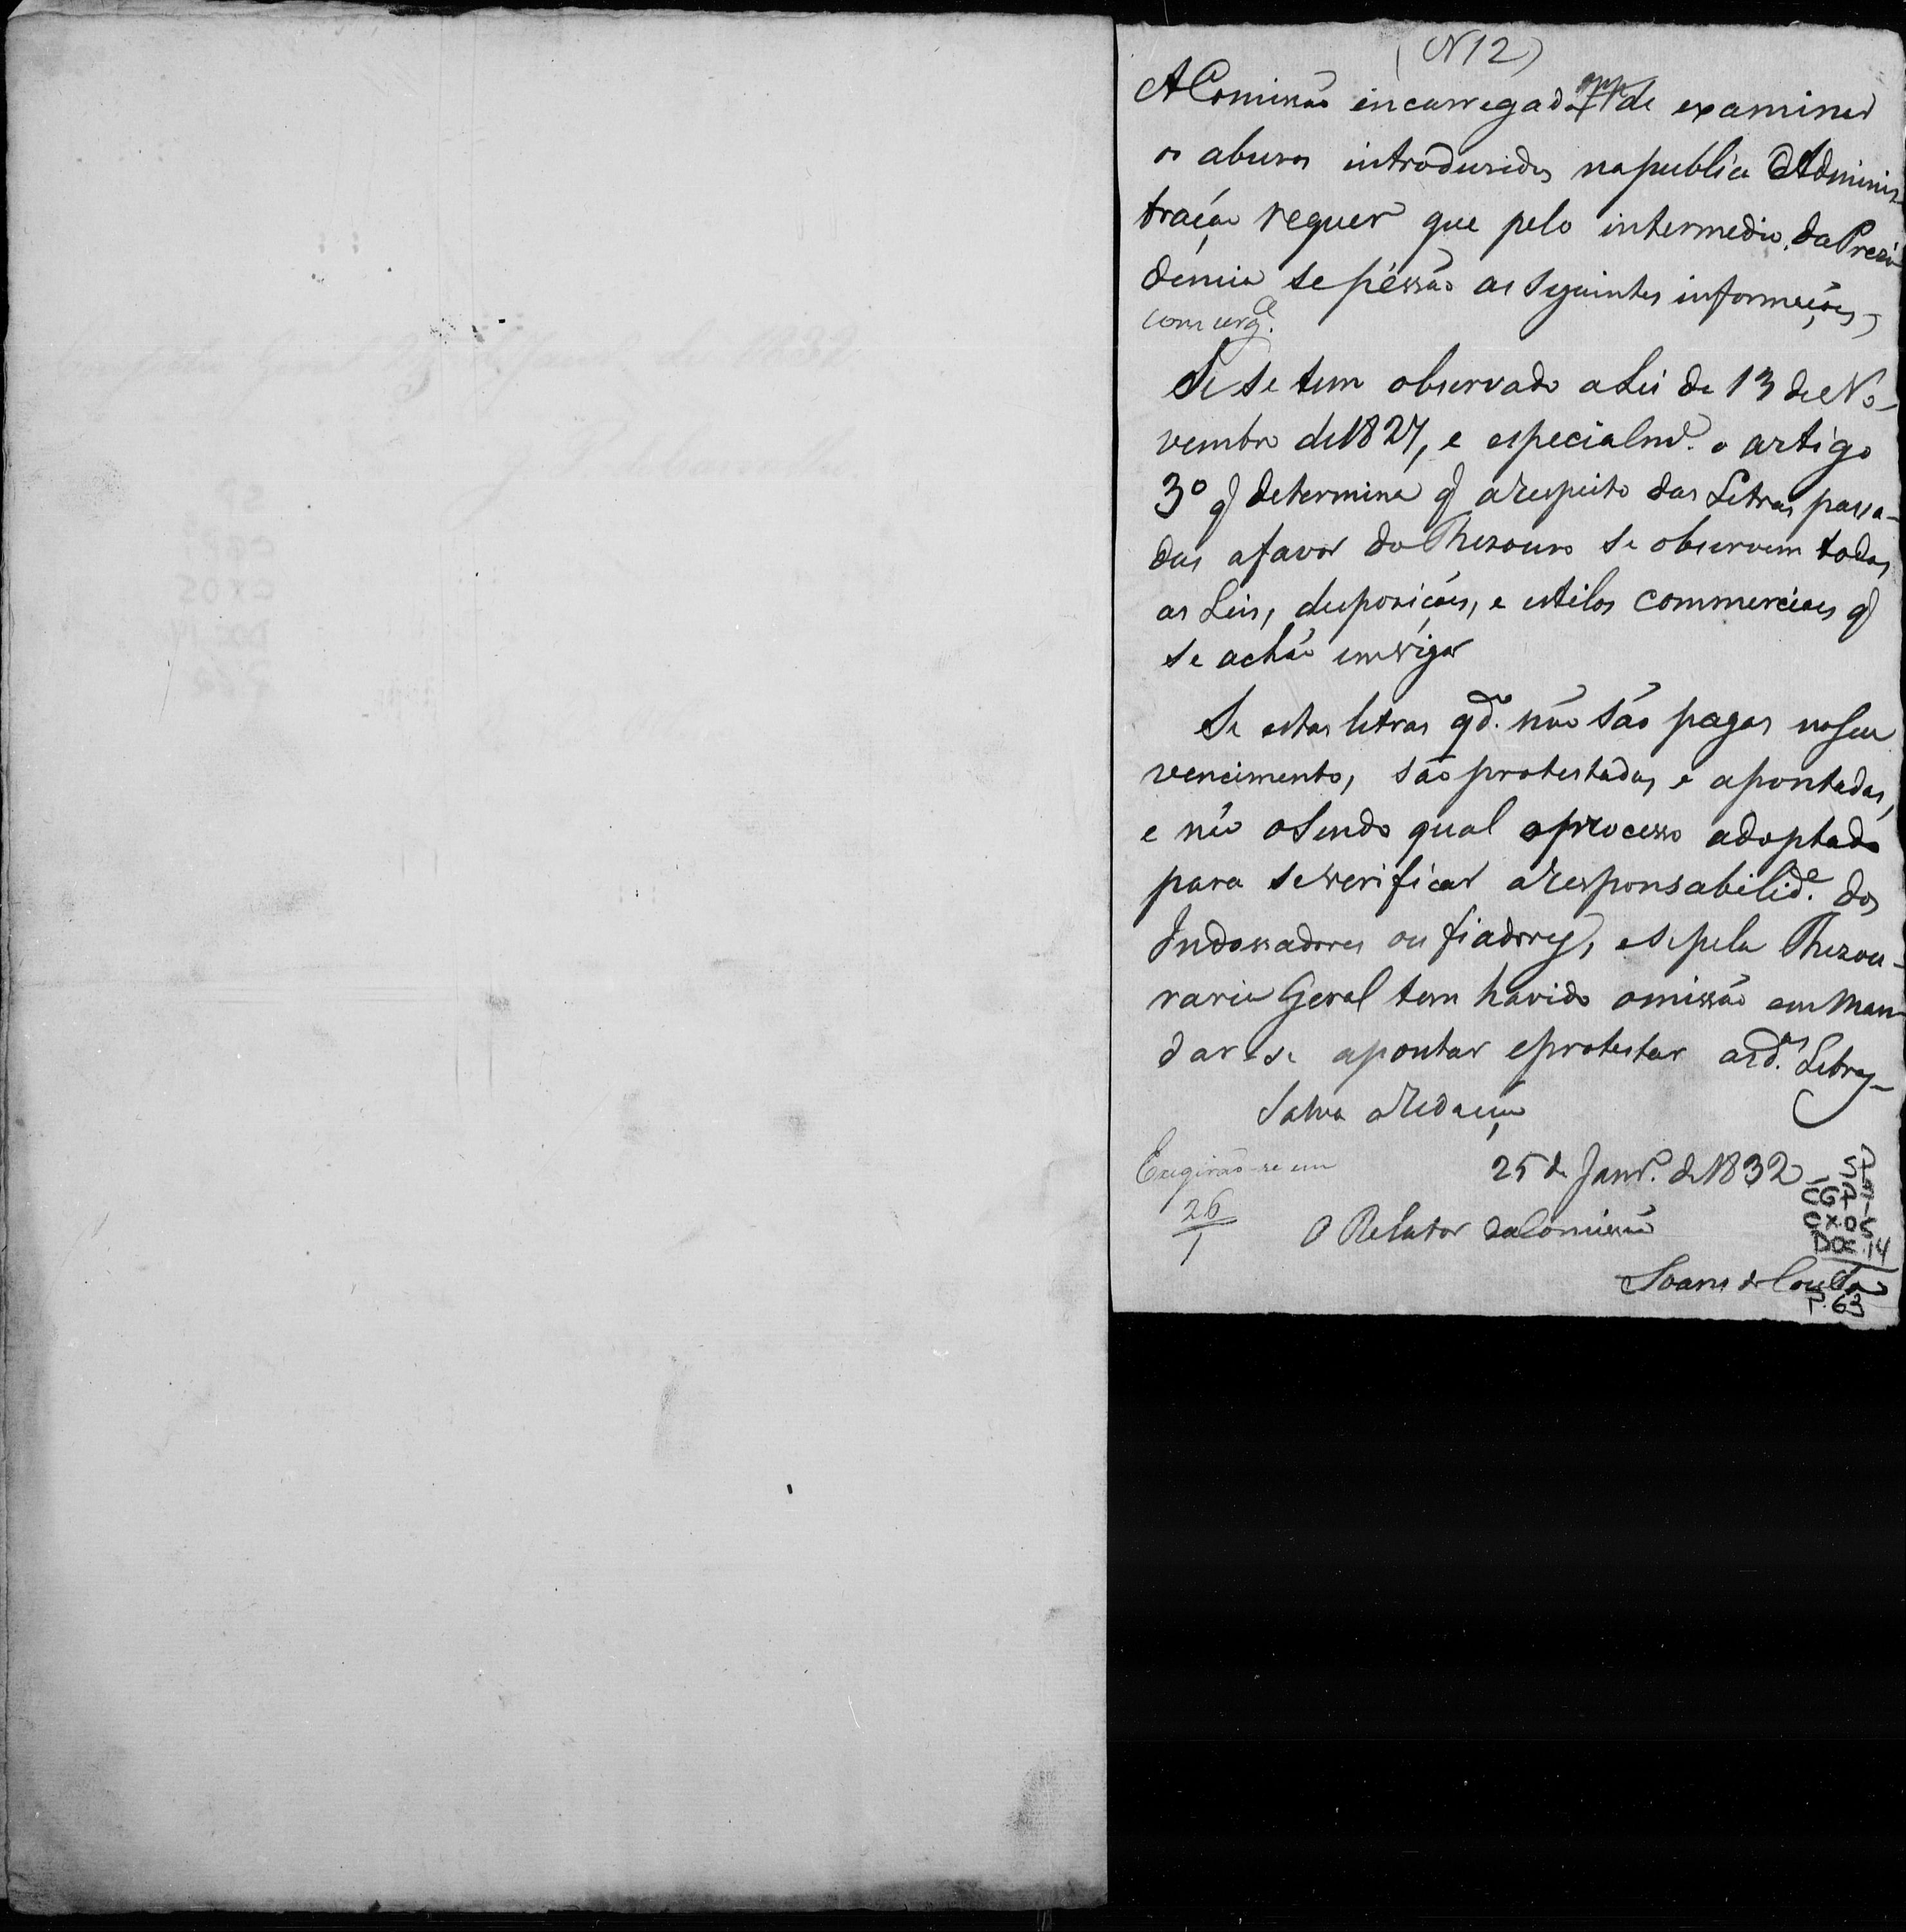 (N 12)
A Comissão encarregada de examinar
os abusos introdusidos na publica Adminis-
tração requer que pelo intermedio da Presi-
dencia se pessão as seguintes informações,
com urg.e
Se se tem observado a Lei de 13 de No-
vembro de 1827, e especialm.e o artigo
3º q determina q a respeito das Letras passa-
das a favor do Thesouro se observem todas
as Leis, disposições, e estilos commerciaes q
se achão em vigor
Se estas letras qd.o não são pagas no seu
vencimento, são protestadas e apontadas,
e não o sendo qual o processo adoptado
para se verificar a responsabilid.e dos
Indossadores ou fiadores, e se pela Thesou-
raria Geral tem havido omissão em man-
dar-se apontar e protestar as d.as Letras-
Salva a Redação
25 de Janr.o de 1832
Exegirão-se em
26
1
O Relator da Comissão
SP
CGP1-
CX.05
DOC.14
P.63